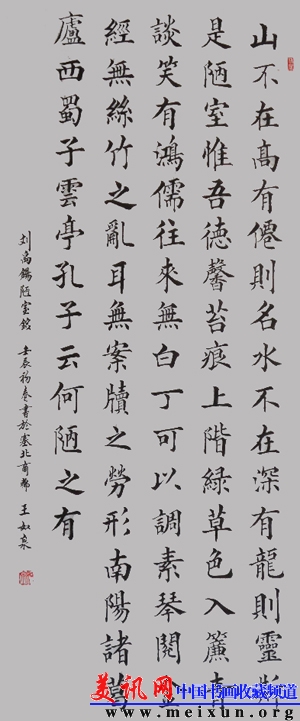 山不在高有僊則名水不在深有龍則靈斯
是陋室惟吾徳馨苔痕上階緑草色入簾青
談笑有鴻儒往來無白丁可以調素琴閱金
經無絲竹之亂耳無案牘之勞形南陽諸葛
廬西蜀子雲亭孔子云何陋之有
刘禹錫陋室銘 壬辰初春書於塞北 王如泉
美讯网 中国书画收藏频道
www.meixun.net